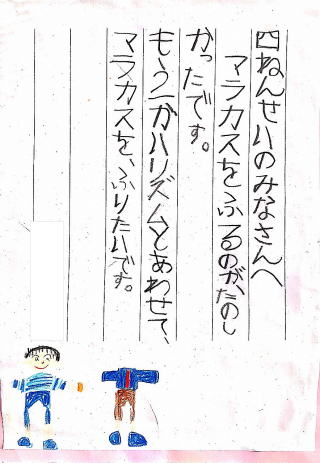 四ねんせいのみなさんへ
マラカスをふるのが、たのし
かったです。
もう一かいリズムとあわせて、
マラカスを、ふりたいです。